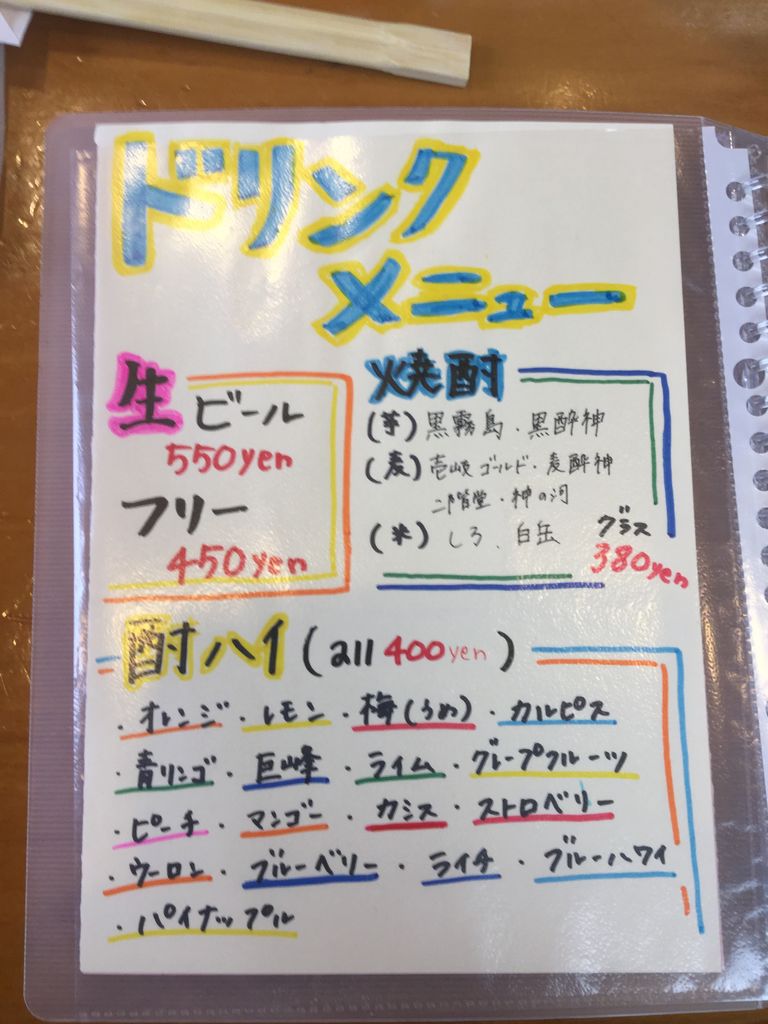 ドリンク
メニュー
生ビール
550yen
フリー
450yen
焼酎
(芋)黒霧島・黒酔神
(麦)壱岐ゴールド・麦酔神
二階堂・神の河
(米)しろ、白岳
グラス
380yen
酎ハイ(all 400yen)
・オレンジ・レモン・梅(うめ)・カルピス
・青リンゴ・巨峰・ライム・グレープフルーツ
・ピーチ・マンゴー・カシス・ストロベリー
・ウーロン・ブルーベリー・ライチ・ブルーハワイ
・パイナップル